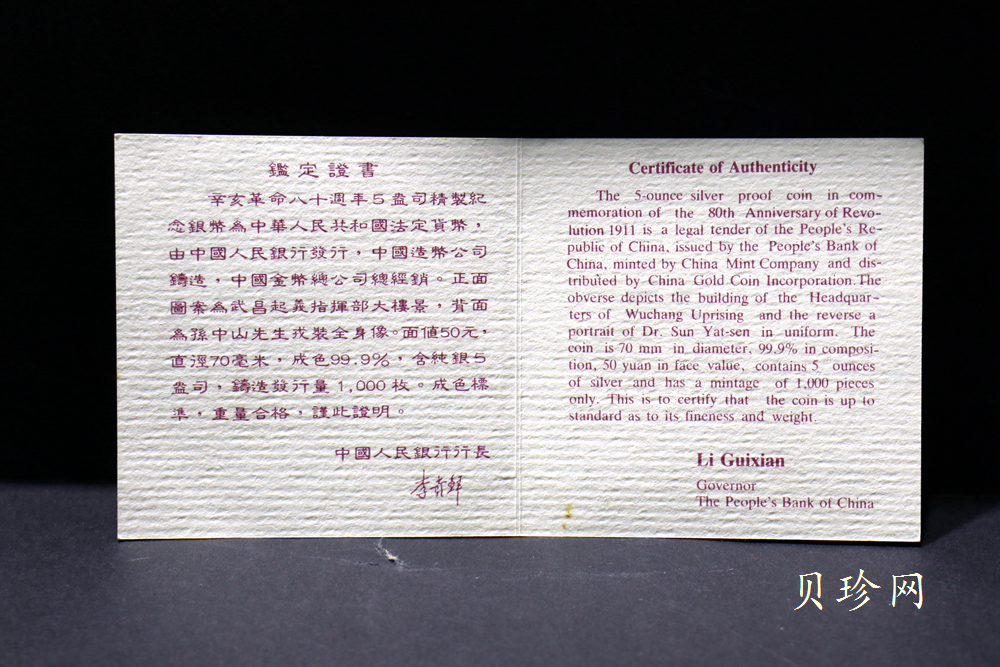 鑑定證書
辛亥革命八十週年5盎司精製紀
念銀幣為中華人民共和國法定貨幣，
由中國人民銀行發行，中國造幣公司
鑄造，中國金幣總公司總經銷。正面
圖案為武昌起義指揮部大樓景，背面
為孫中山先生戎裝全身像。面値50元，
直徑70毫米，成色99.9%，含純銀5
盎司，鑄造發行量1,000枚。成色標
準，重量合格，謹此證明。
中國人民銀行行長
Certificate of Authenticity
The 5-ounce silver proof coin in com-
memoration of the 80th Anniversary of Revo-
lution 1911 is a legal tender of the People's Re-
public of China, issued by the People's Bank of
China, minted by China Mint Company and dis-
tributed by China Gold Coin Incorporation. The
obverse depicts the building of the Headquar-
ters of Wuchang Uprising and the reverse a
portrait of Dr. Sun Yat-sen in uniform. The
coin is 70 mm in diameter, 99.9% in composi-
tion, 50 yuan in face value, contains 5 ounces
of silver and has a mintage of 1,000 pieces
only. This is to certify that the coin is up to
standard as to its fineness and weight.
Li Guixian
Governor
The People's Bank of China
贝珍网